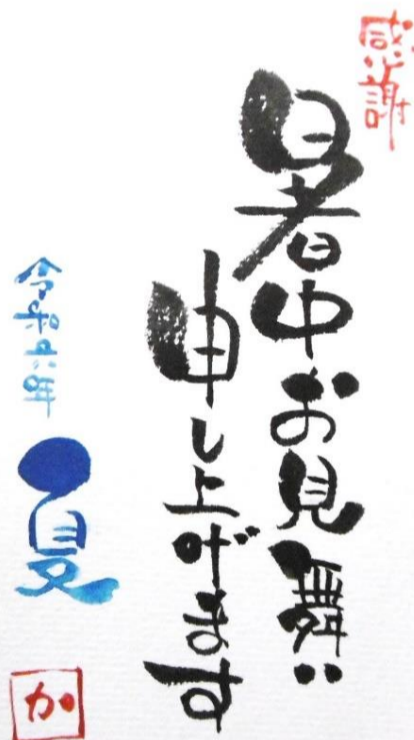 感謝
暑中お見舞い
申し上げます
令和六年
夏
か